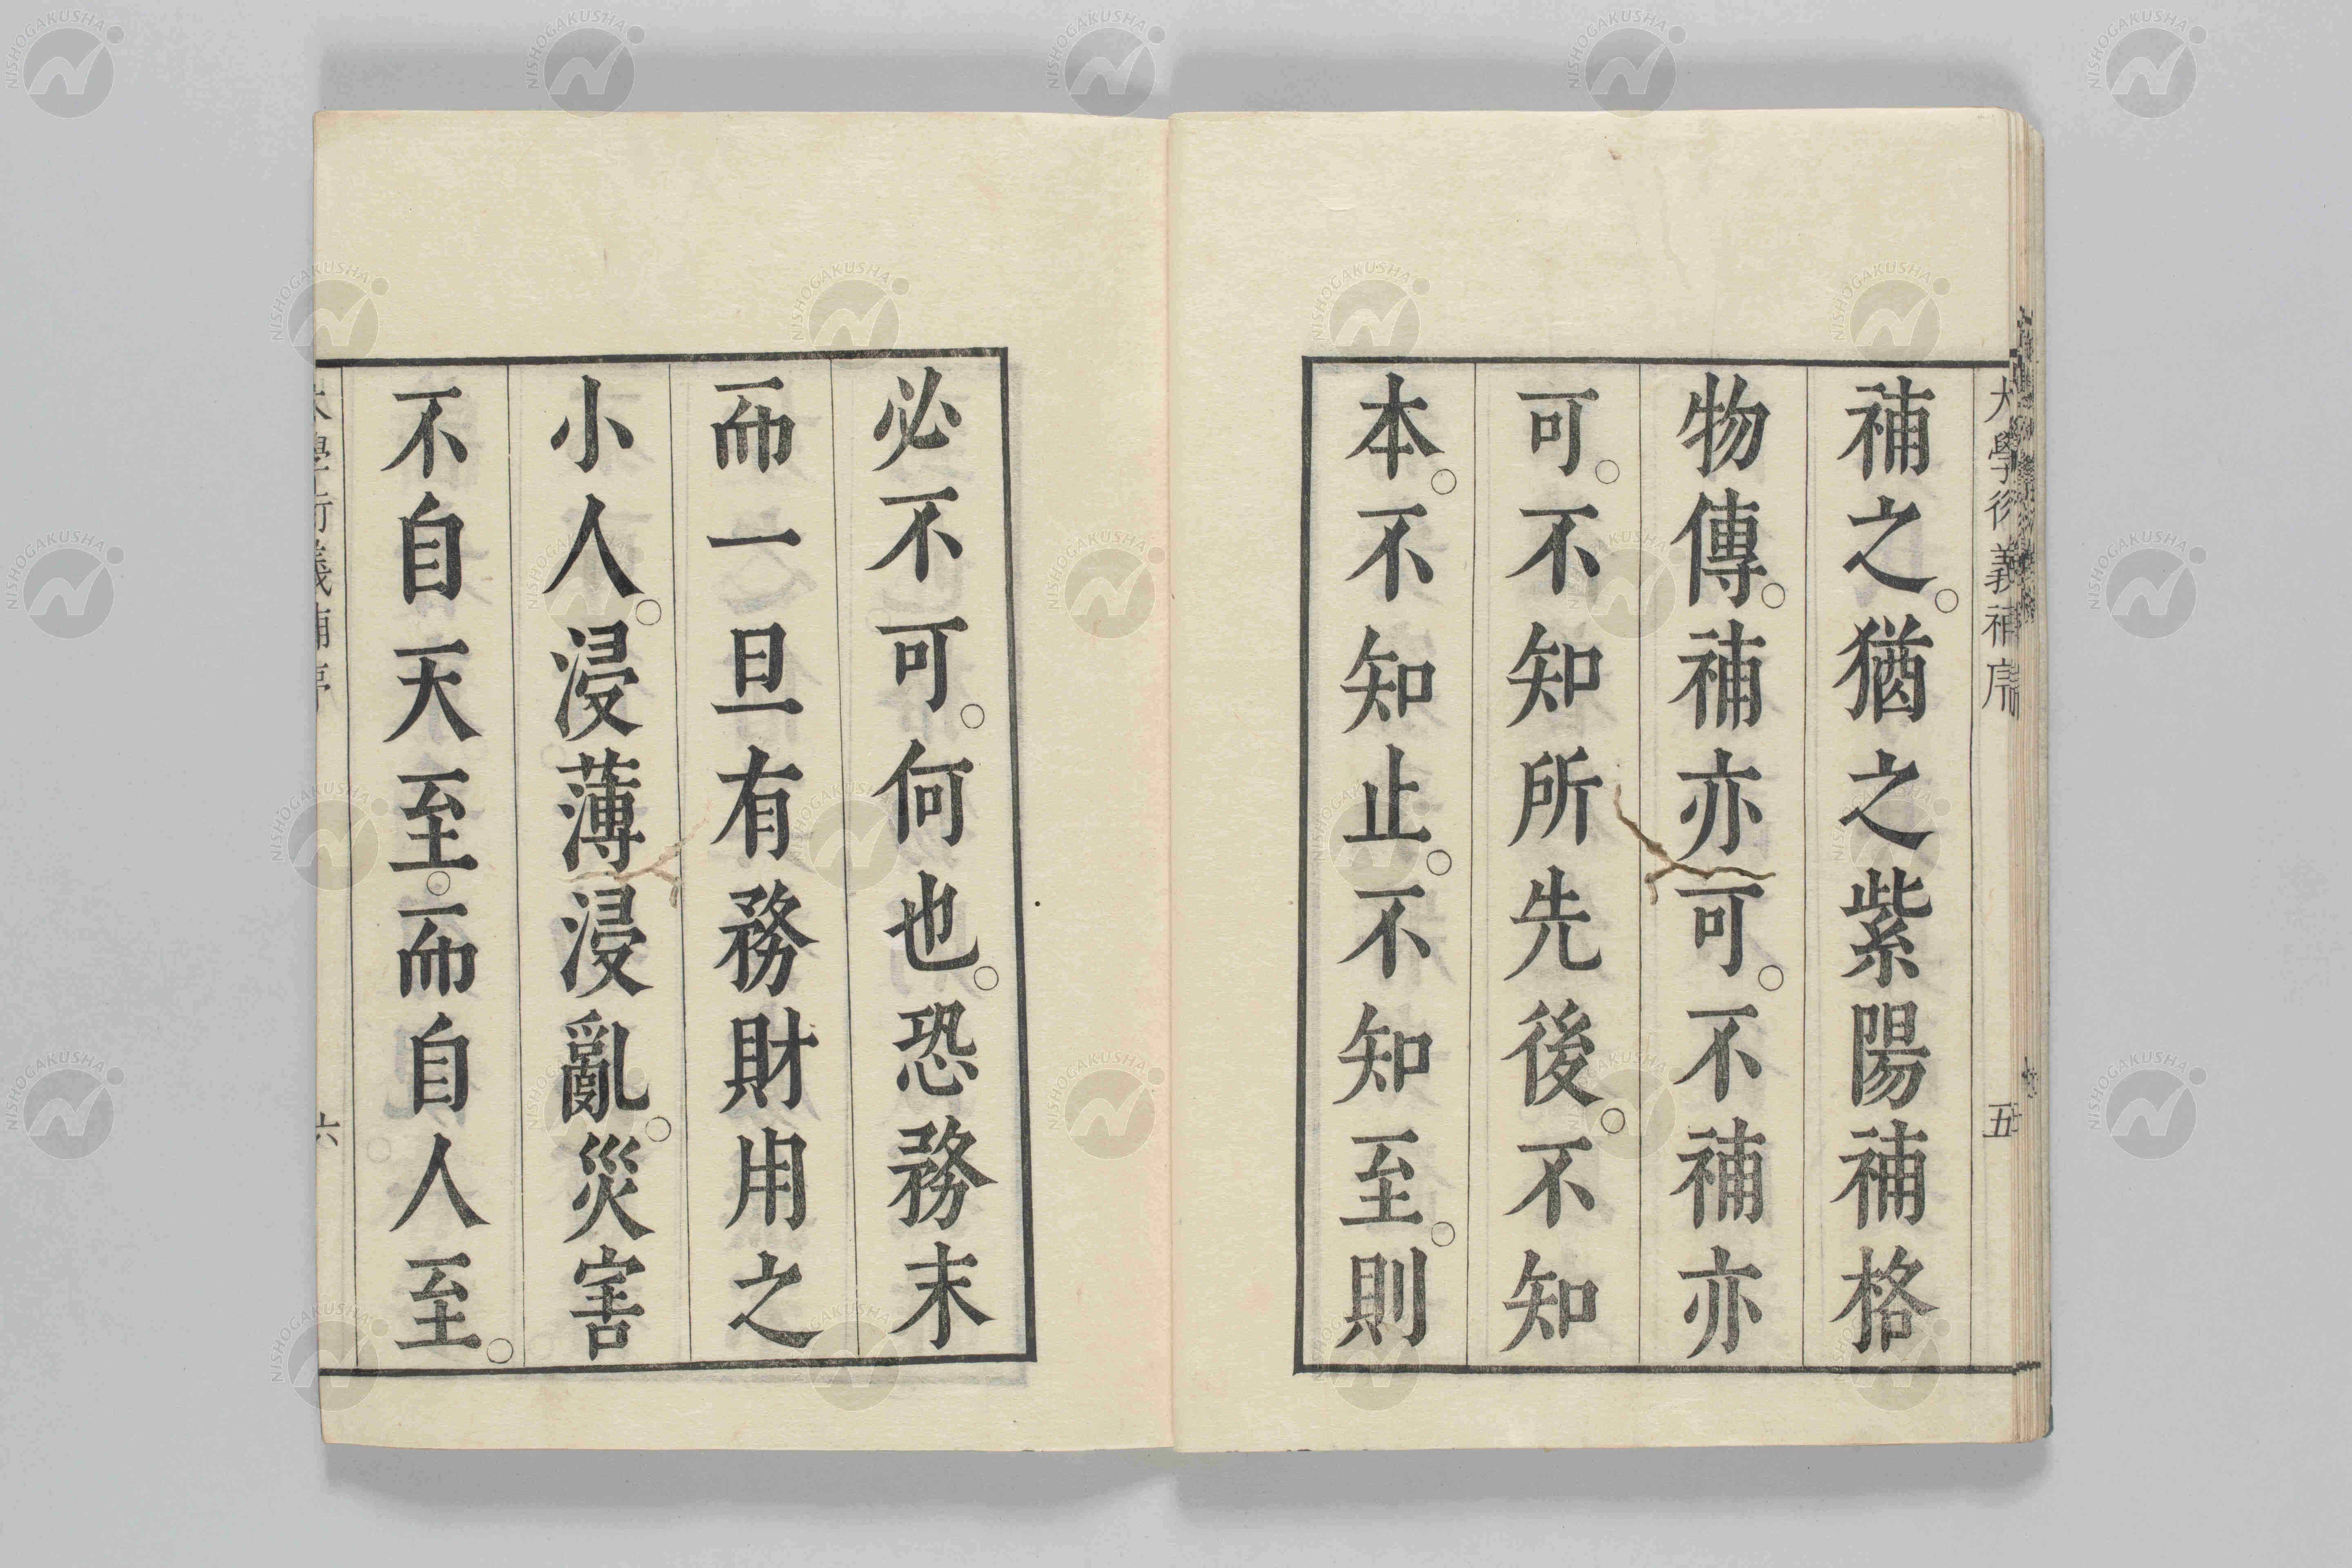 大學衍義補序
五
補之。猶之紫陽補格
物傳。補亦可。不補亦
可。不知所先後。不知
本。不知止。不知至。則
必不可。何也。恐務末
而一旦有務財用之
小人。浸薄浸亂。災害
不自天至。而自人至。
大學衍義補序
六
NISHOGAKUSHA